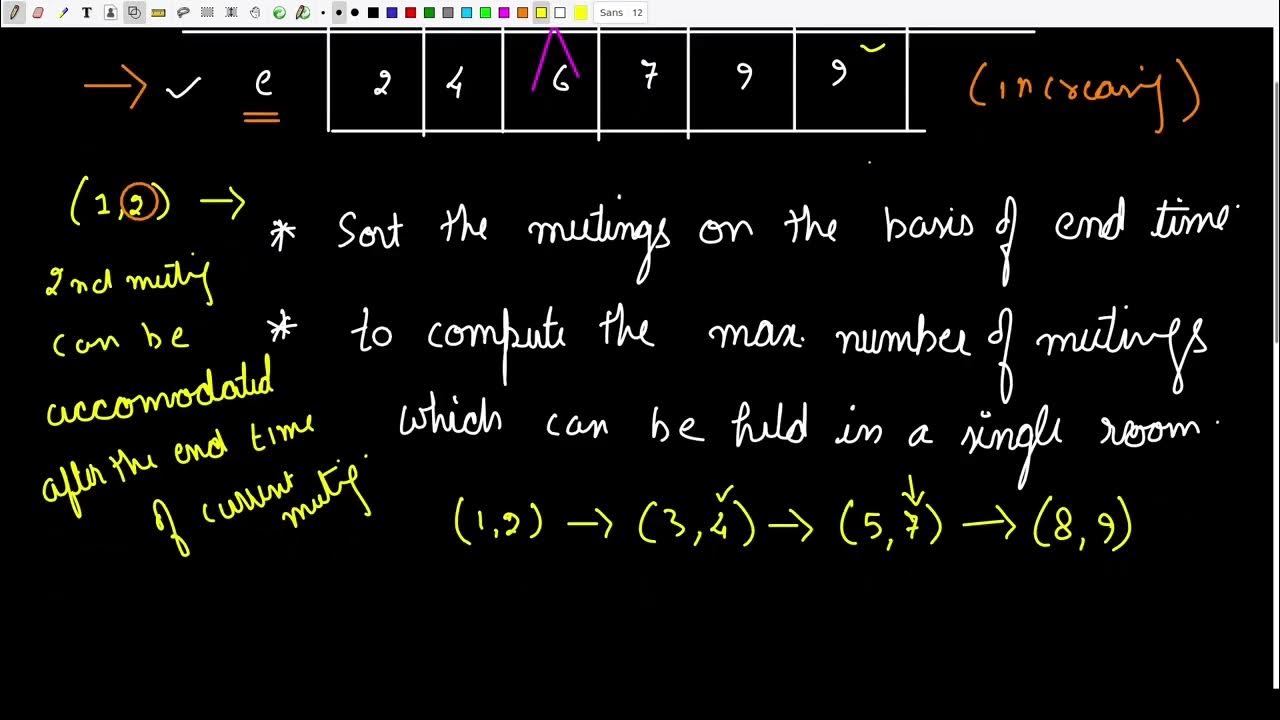 T
Sans 12
e 2 4 6 7 9 9 (increasing)
(1,2) →
* Sort the meetings on the basis of end time.
2nd meeting
can be
accomodated
after the end time
of current
meeting.
* to compute the max. number of meetings
which can be held in a single room.
(1,2) → (3,4) → (5,7) → (8,9)